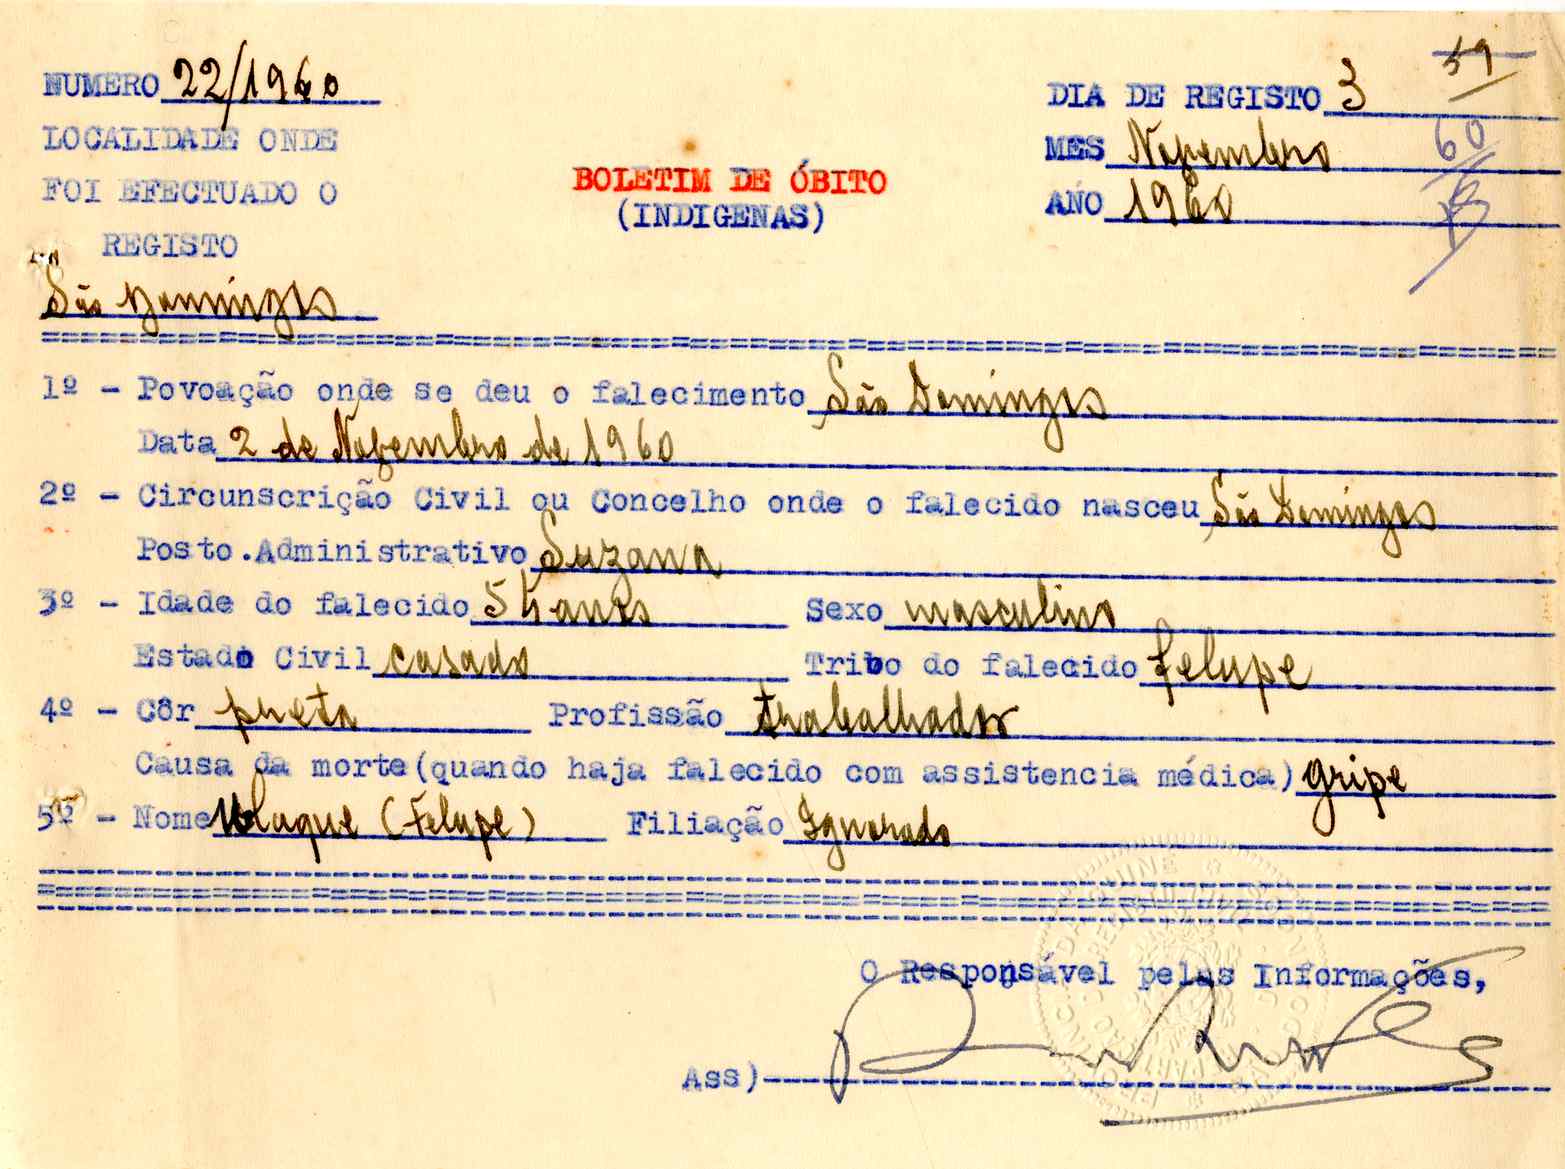 NUMERO 22/1960
LOCALIDADE ONDE
FOI EFECTUADO O
REGISTO
São Domingos
BOLETIM DE ÓBITO
(INDIGENAS)
59
DIA DE REGISTO 3
60
MES Novembro
ANO 1960
1º - Povoação onde se deu o falecimento São Domingos
Data 2 de Novembro de 1960
2º - Circunscrição Civil ou Concelho onde o falecido nasceu São Domingos
Posto.Administrativo Suzana
3º - Idade do falecido 54 anos Sexo masculino
Estado Civil casado Tribo do falecido felupe
4º - Côr preta Profissão trabalhador
Causa da morte(quando haja falecido com assistencia médica) gripe
5º - Nome (Felupe) Filiação Ignorado
O Responsável pelas Informações,
Ass)